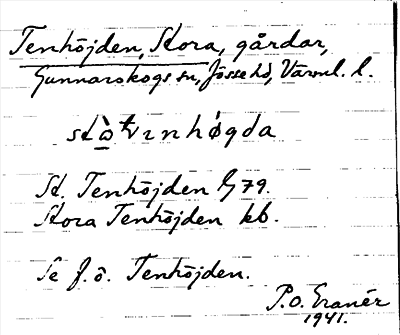 Tenhöjden, Stora, gårdar,
Gunnarskogs sn, Jösse hd, Värml. l.
St. Tenhöjden Lj 79.
Stora Tenhöjden kb.
Se f. ö. Tenhöjden.
P.O. Granér
1941.